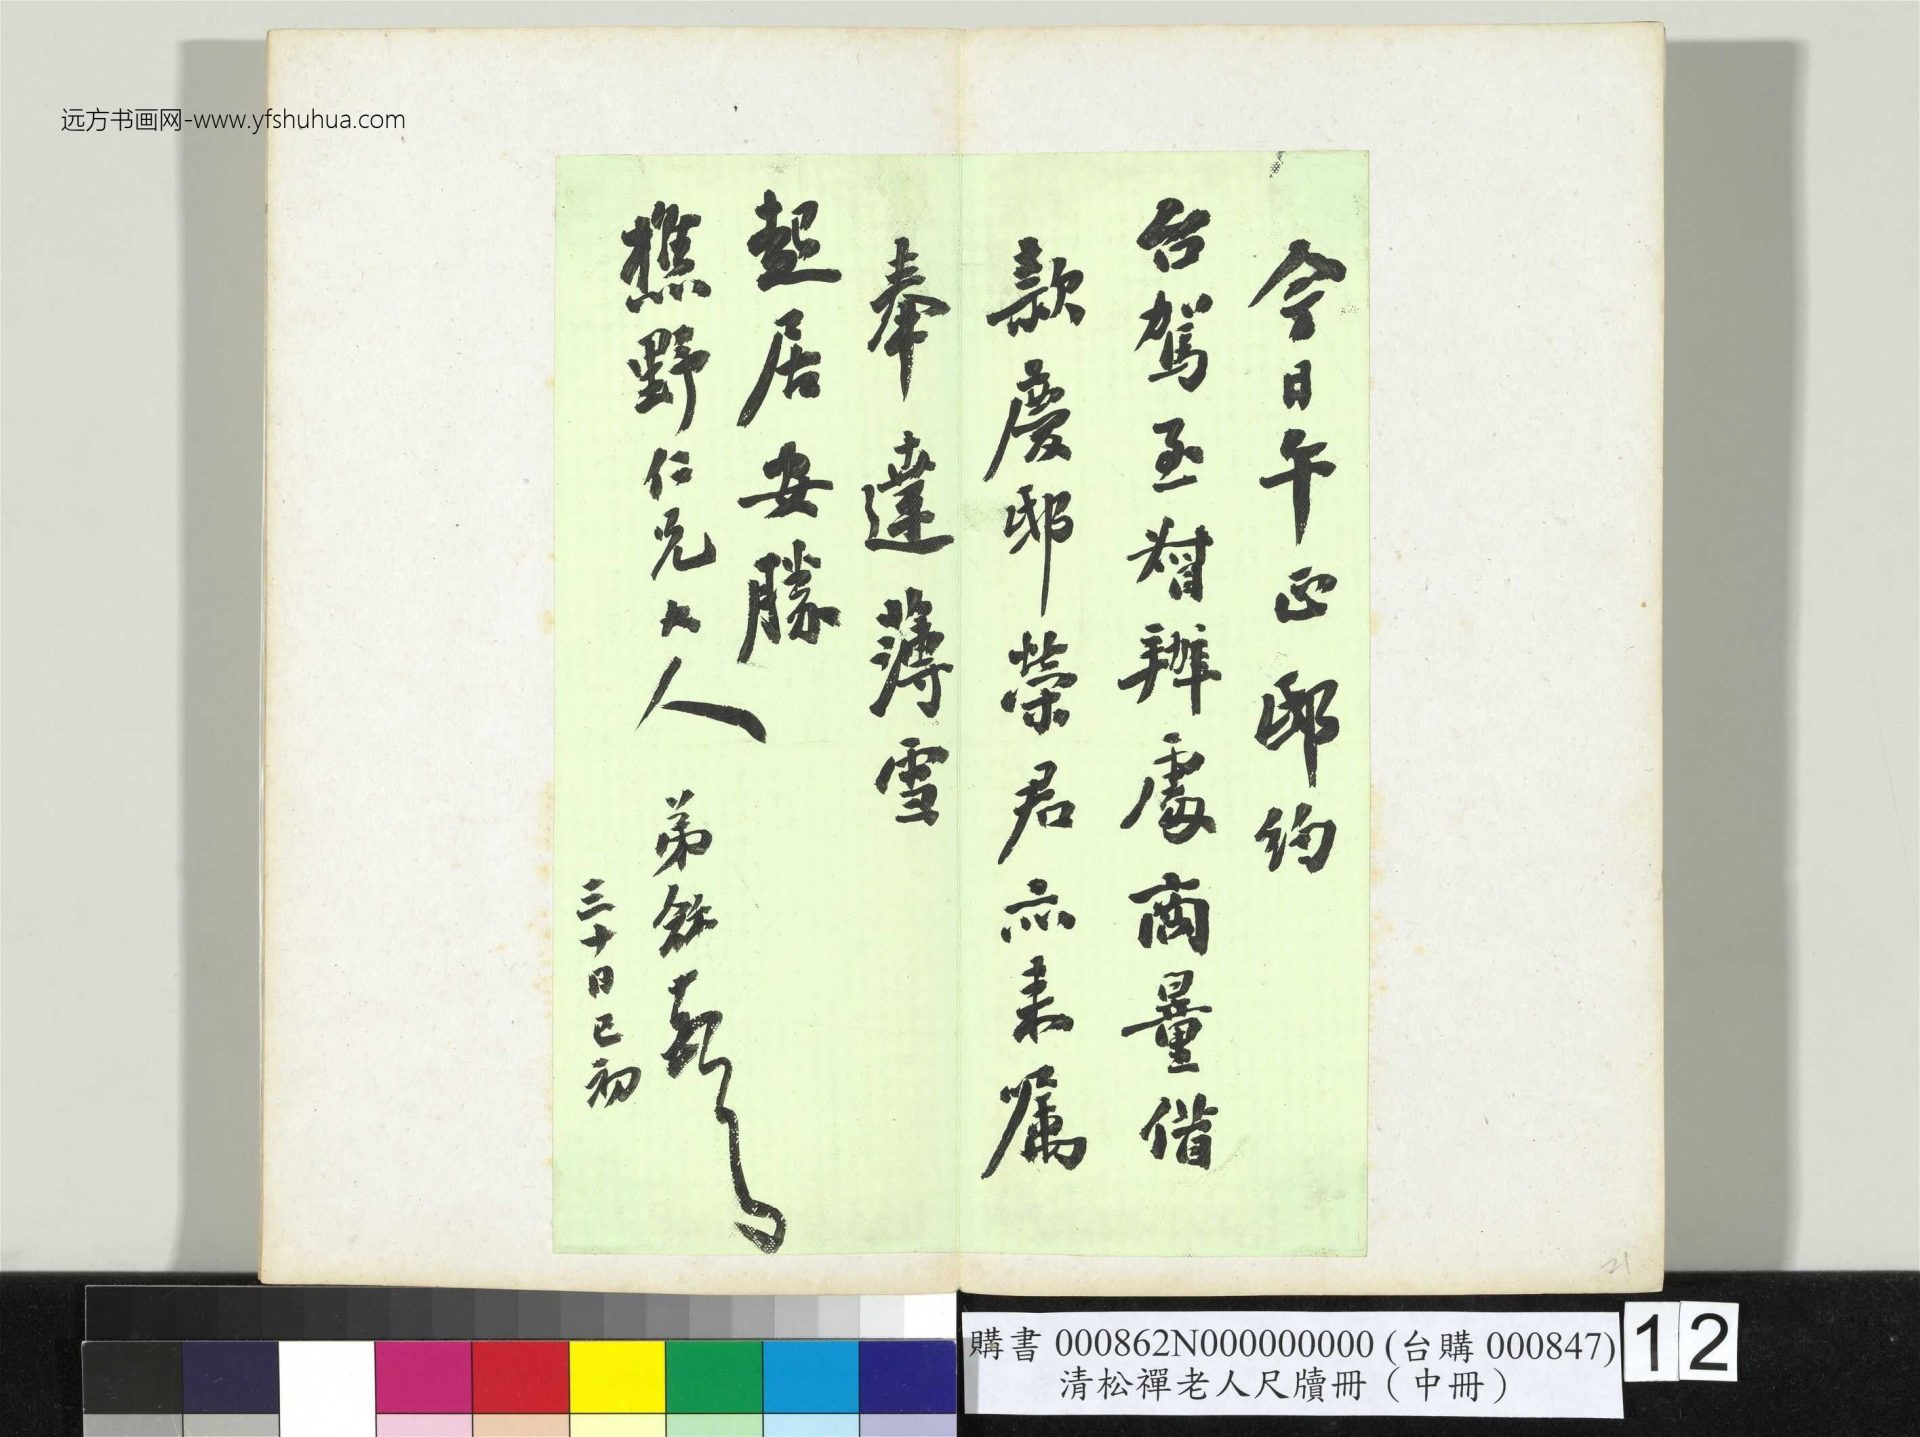 远方书画网-www.yfshuhua.com
今日午正邸約
台駕至督辦處商量借
款慶邸榮君亦来囑
奉達薄雪
起居安勝
樵野仁兄大人 弟龢頓首
三十日巳初
21
購書 000862N000000000 (台購 000847)
清松禪老人尺牘冊（中冊）
12